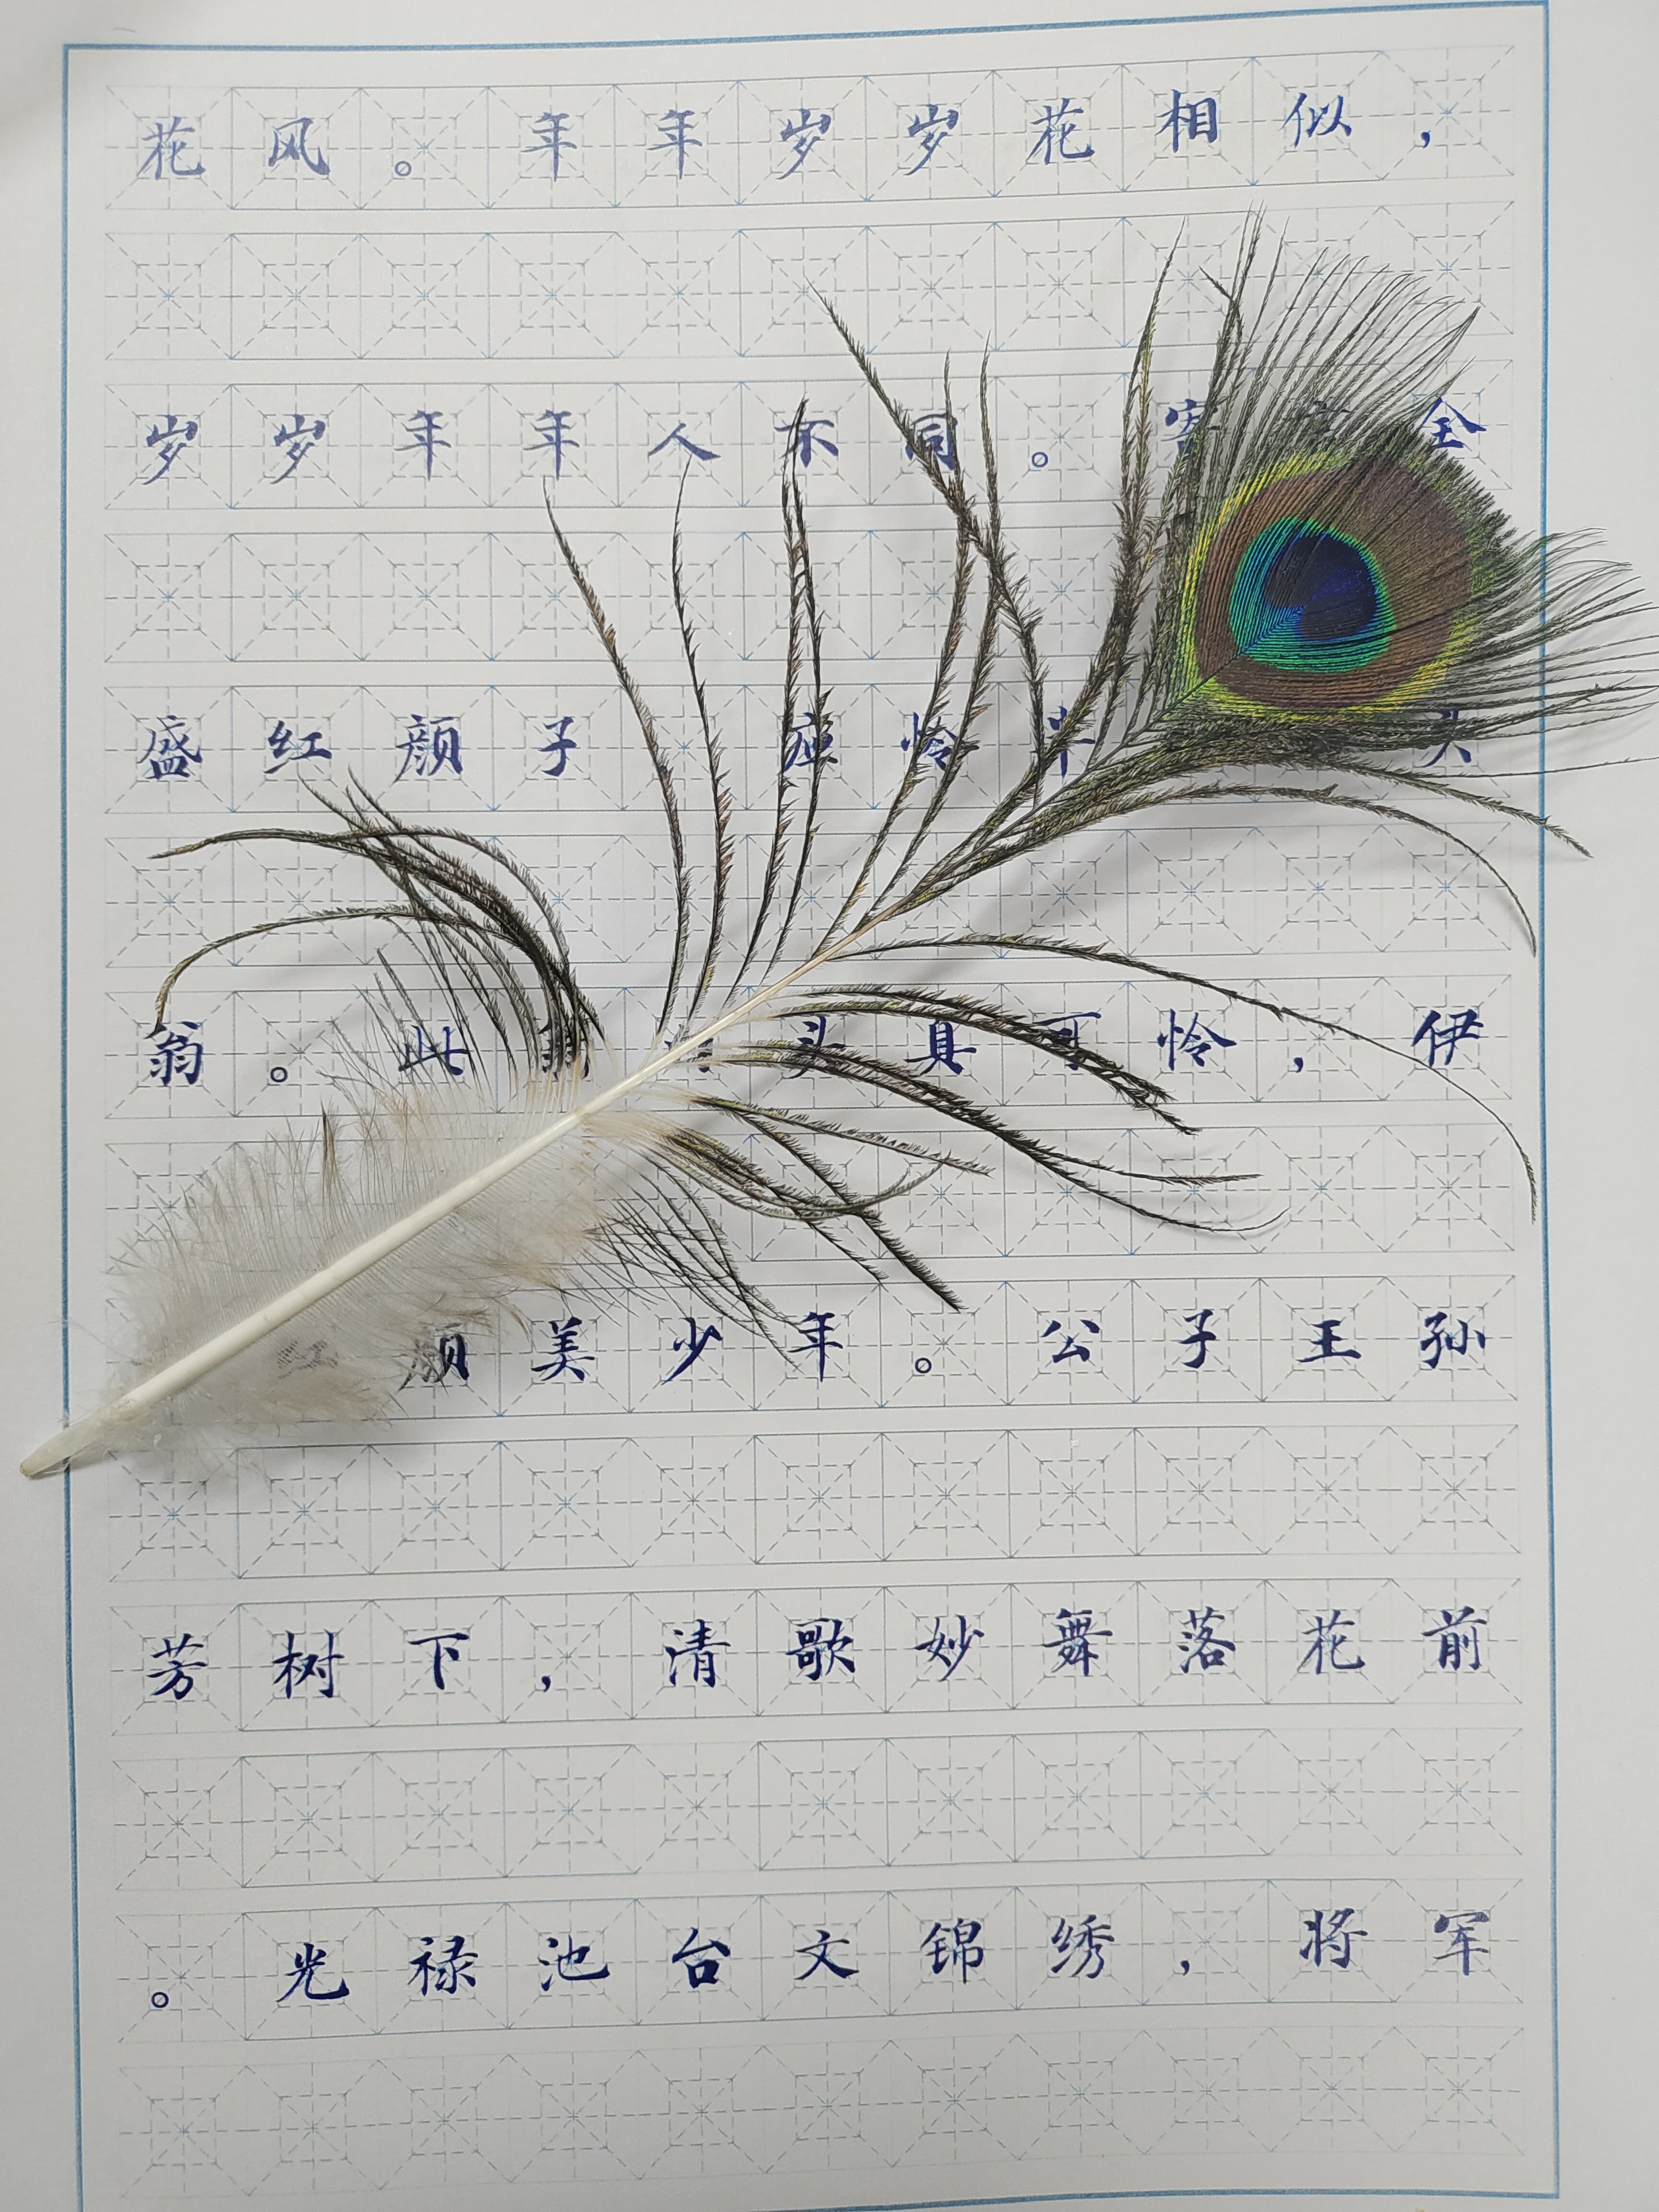 花风。年年岁岁花相似，
岁岁年年人不同。寄全
盛红颜子怜半头
翁。此头真可怜，伊
颜美少年。公子王孙
芳树下，清歌妙舞落花前
。光禄池台文锦绣，将军